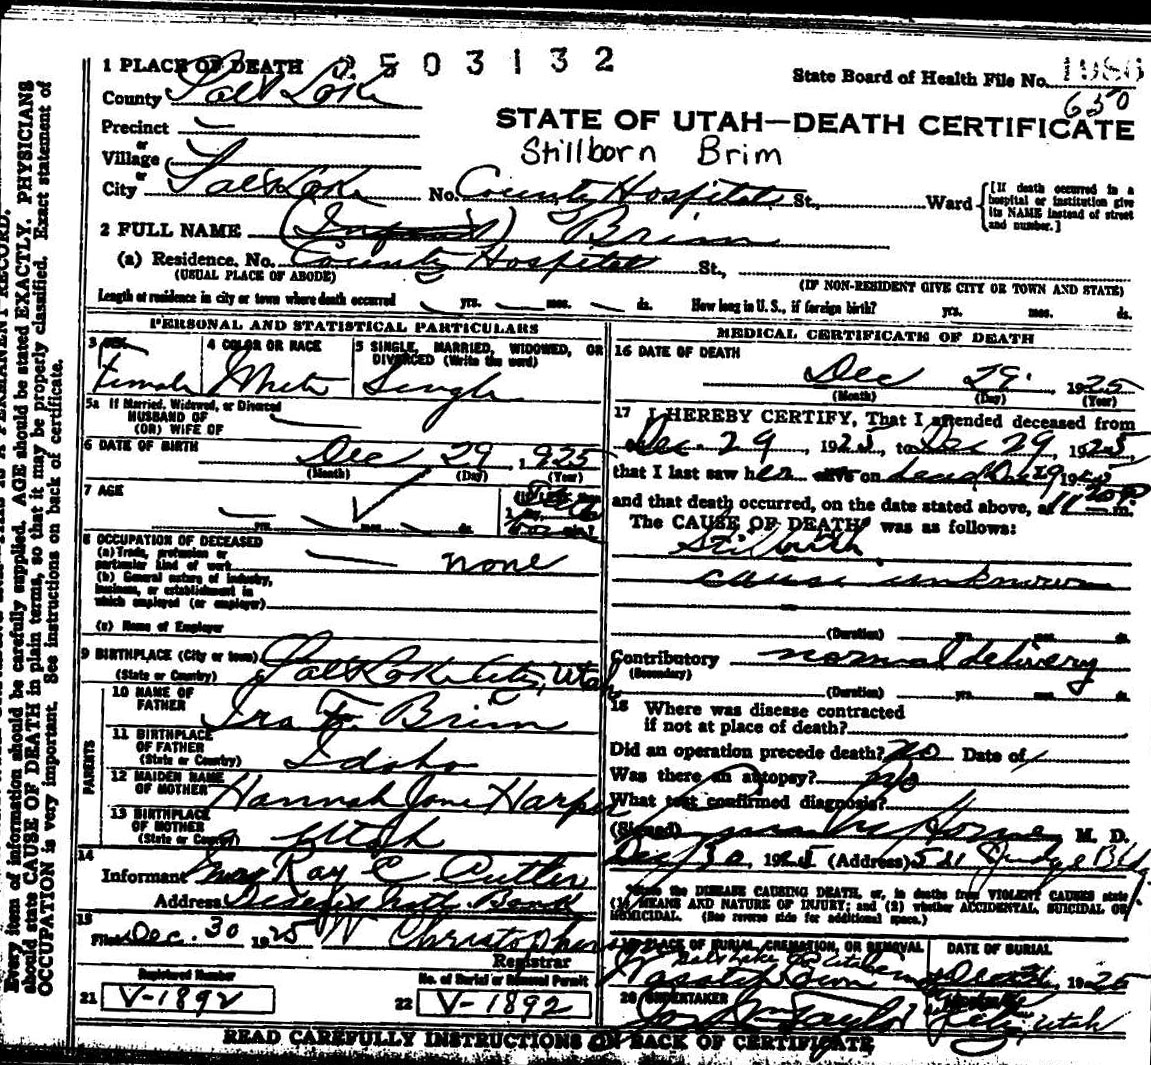 1 PLACE OF DEATH 2503132
State Board of Health File No. 1986
County Salt Lake
650
STATE OF UTAH—DEATH CERTIFICATE
Precinct
or
Village
Stillborn Brim
or
City Salt Lake No. County Hospital St., Ward
[If death occurred in a hospital or institution give its NAME instead of street and number.]
2 FULL NAME (Infant) Brim
(a) Residence. No. County Hospital St.,
(USUAL PLACE OF ABODE) (IF NON-RESIDENT GIVE CITY OR TOWN AND STATE)
Length of residence in city or town where death occurred yrs. mos. ds. How long in U. S., if foreign birth? yrs. mos. ds.
PERSONAL AND STATISTICAL PARTICULARS
3 SEX 4 COLOR OR RACE 5 SINGLE, MARRIED, WIDOWED, OR DIVORCED (Write the word)
Female White Single
5a If Married, Widowed, or Divorced
HUSBAND OF
(OR) WIFE OF
6 DATE OF BIRTH Dec 29, 1925
(Month) (Day) (Year)
7 AGE
yrs. mos. ds.
8 OCCUPATION OF DECEASED
(a) Trade, profession or
particular kind of work none
(b) General nature of industry,
business, or establishment in
which employed (or employer)
(c) Name of Employer
9 BIRTHPLACE (City or town) Salt Lake City, Utah
(State or Country)
PARENTS
10 NAME OF
FATHER Ira F. Brim
11 BIRTHPLACE
OF FATHER Idaho
(State or Country)
12 MAIDEN NAME
OF MOTHER Hannah Jane Harper
13 BIRTHPLACE
OF MOTHER Utah
(State or Country)
14
Informant Ray C Cutler
Address Deseret Natl. Bank
15
Filed Dec. 30 1925 W Christophers
Registrar
Registered Number No. of Burial or Removal Permit
21 V-1892 22 V-1892
MEDICAL CERTIFICATE OF DEATH
16 DATE OF DEATH
Dec 29 1925
(Month) (Day) (Year)
17 I HEREBY CERTIFY, That I attended deceased from
Dec. 29 1925, to Dec 29, 1925,
that I last saw her alive on dead Dec 29 1925
and that death occurred, on the date stated above, at 11 20 P m.
The CAUSE OF DEATH was as follows:
Stillbirth
cause unknown
(Duration) yrs. mos. ds.
Contributory normal delivery
(Secondary)
(Duration) yrs. mos. ds.
18 Where was disease contracted
if not at place of death?
Did an operation precede death? no Date of
Was there an autopsy? no
What test confirmed diagnosis?
(Signed) Horne M. D.
Dec 30, 1925 (Address) 521 Judge Bldg.
State the DISEASE CAUSING DEATH, or, in deaths from VIOLENT CAUSES state
(1) MEANS AND NATURE OF INJURY; and (2) whether ACCIDENTAL, SUICIDAL OR
HOMICIDAL. (See reverse side for additional space.)
19 PLACE OF BURIAL, CREMATION, OR REMOVAL DATE OF BURIAL
Salt Lake Utah
Wasatch Lawn 1925
20 UNDERTAKER
Taylor City, Utah
READ CAREFULLY INSTRUCTIONS ON BACK OF CERTIFICATE
Every item of information should be carefully supplied. AGE should be stated EXACTLY. PHYSICIANS
should state CAUSE OF DEATH in plain terms, so that it may be properly classified. Exact statement of
OCCUPATION is very important. See instructions on back of certificate.